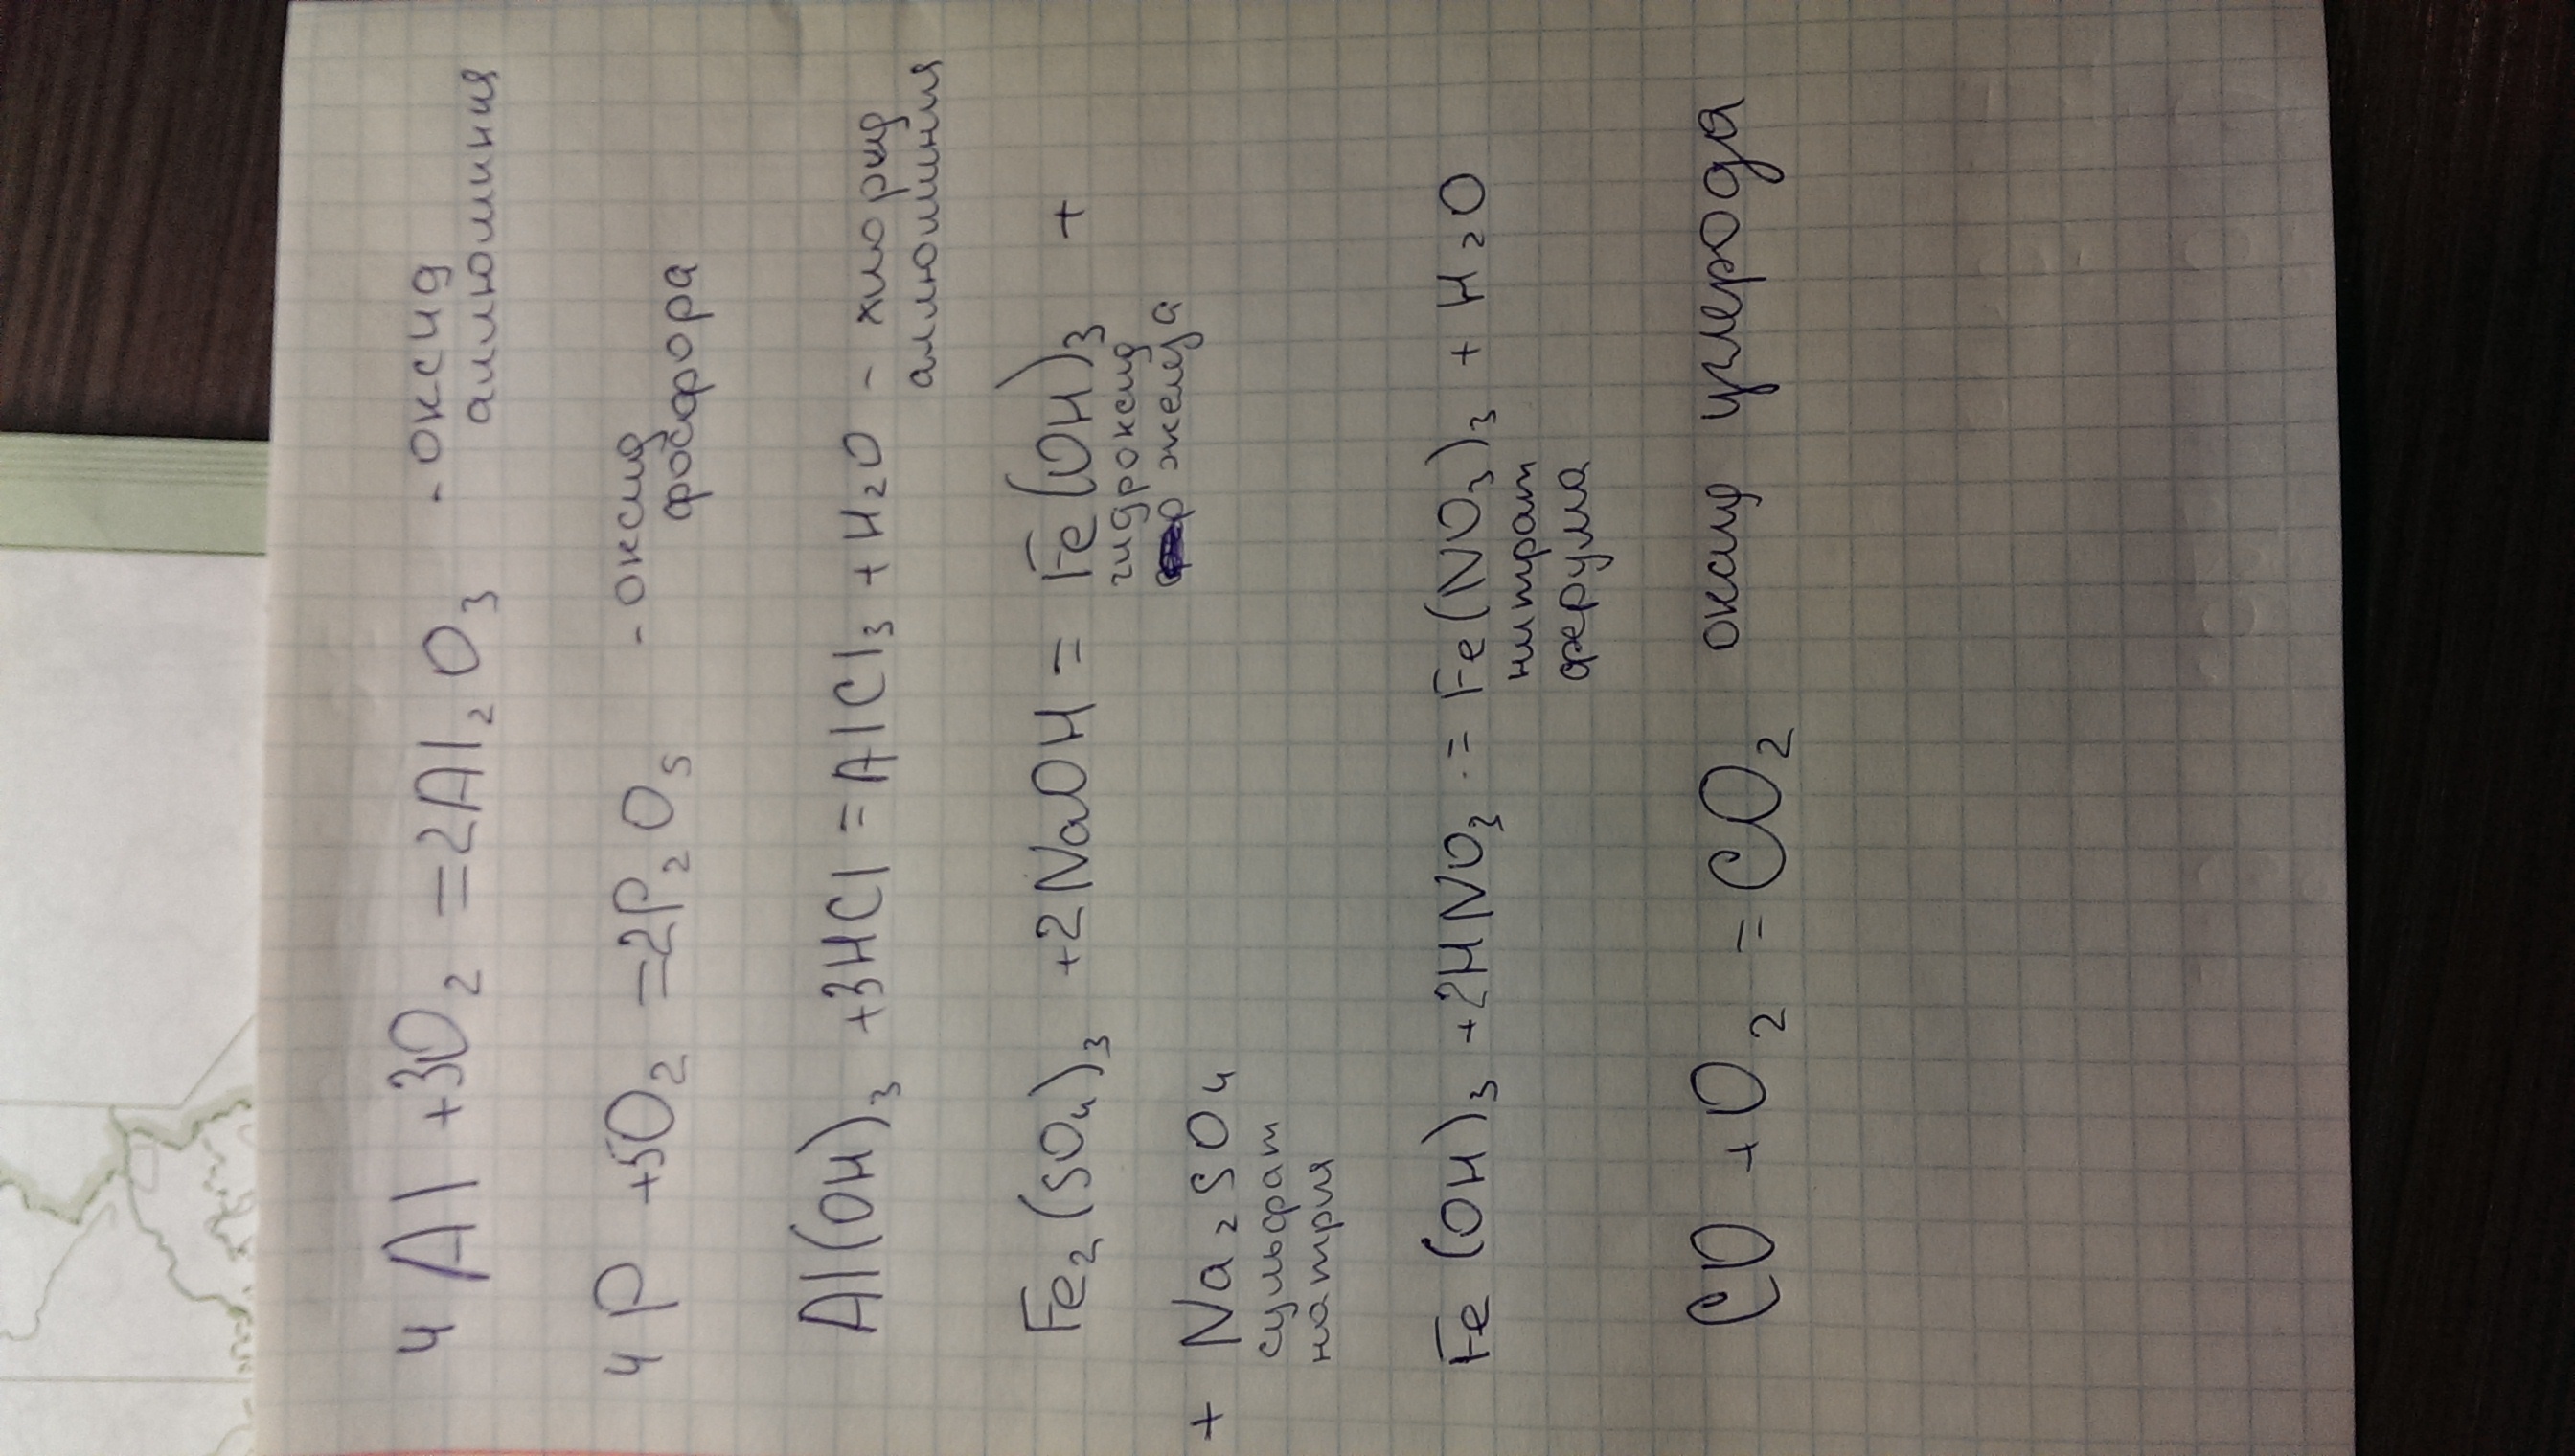 4 Al + 3O₂ = 2Al₂O₃ - оксид
аллюминия
4 P + 5O₂ = 2P₂O₅ - оксид
фосфора
Al(OH)₃ + 3HCl = AlCl₃ + H₂O - хлорид
аллюминия
Fe₂(SO₄)₃ + 2NaOH = Fe(OH)₃ +
гидроксид
железа
+ Na₂SO₄
сульфат
натрия
Fe(OH)₃ + 2HNO₃ = Fe(NO₃)₃ + H₂O
нитрат
ферума
CO + O₂ = CO₂ оксид углерода